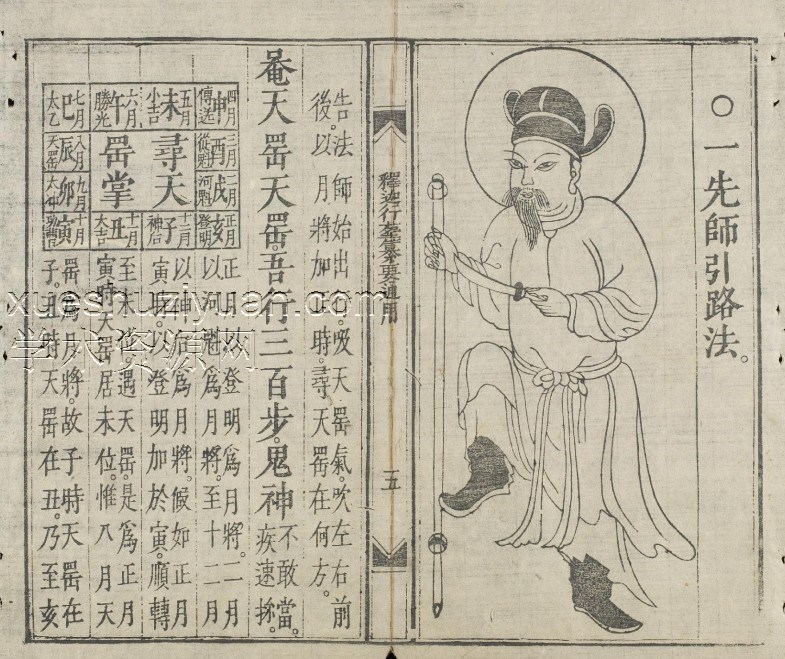 ○一先師引路法。
釋迦行
要通用
五
告法師始出行。吸天罡氣。吹左右前
後。以月將加正時。尋天罡在何方。
菴天罡天罡。吾行三百步。鬼神
不敢當。
疾速
四月申傳送
三月酉從魁
二月戌河魁
正月亥登明
五月未小吉
尋天
十二月子神后
六月午勝光
罡掌
十一月丑大吉
七月巳太乙
八月辰天罡
九月卯太冲
十月寅功曹
正月以登明爲月將。二月
以河魁爲月將。至十二月
以神后爲月將。候如正月
寅時。以登明加於寅。順轉
至未位。遇天罡。是爲正月
寅時天罡居未位。惟八月天
罡爲月將。故子時天罡在
子。丑時天罡在丑。乃至亥
xueshuziyuan.com
学术资源网